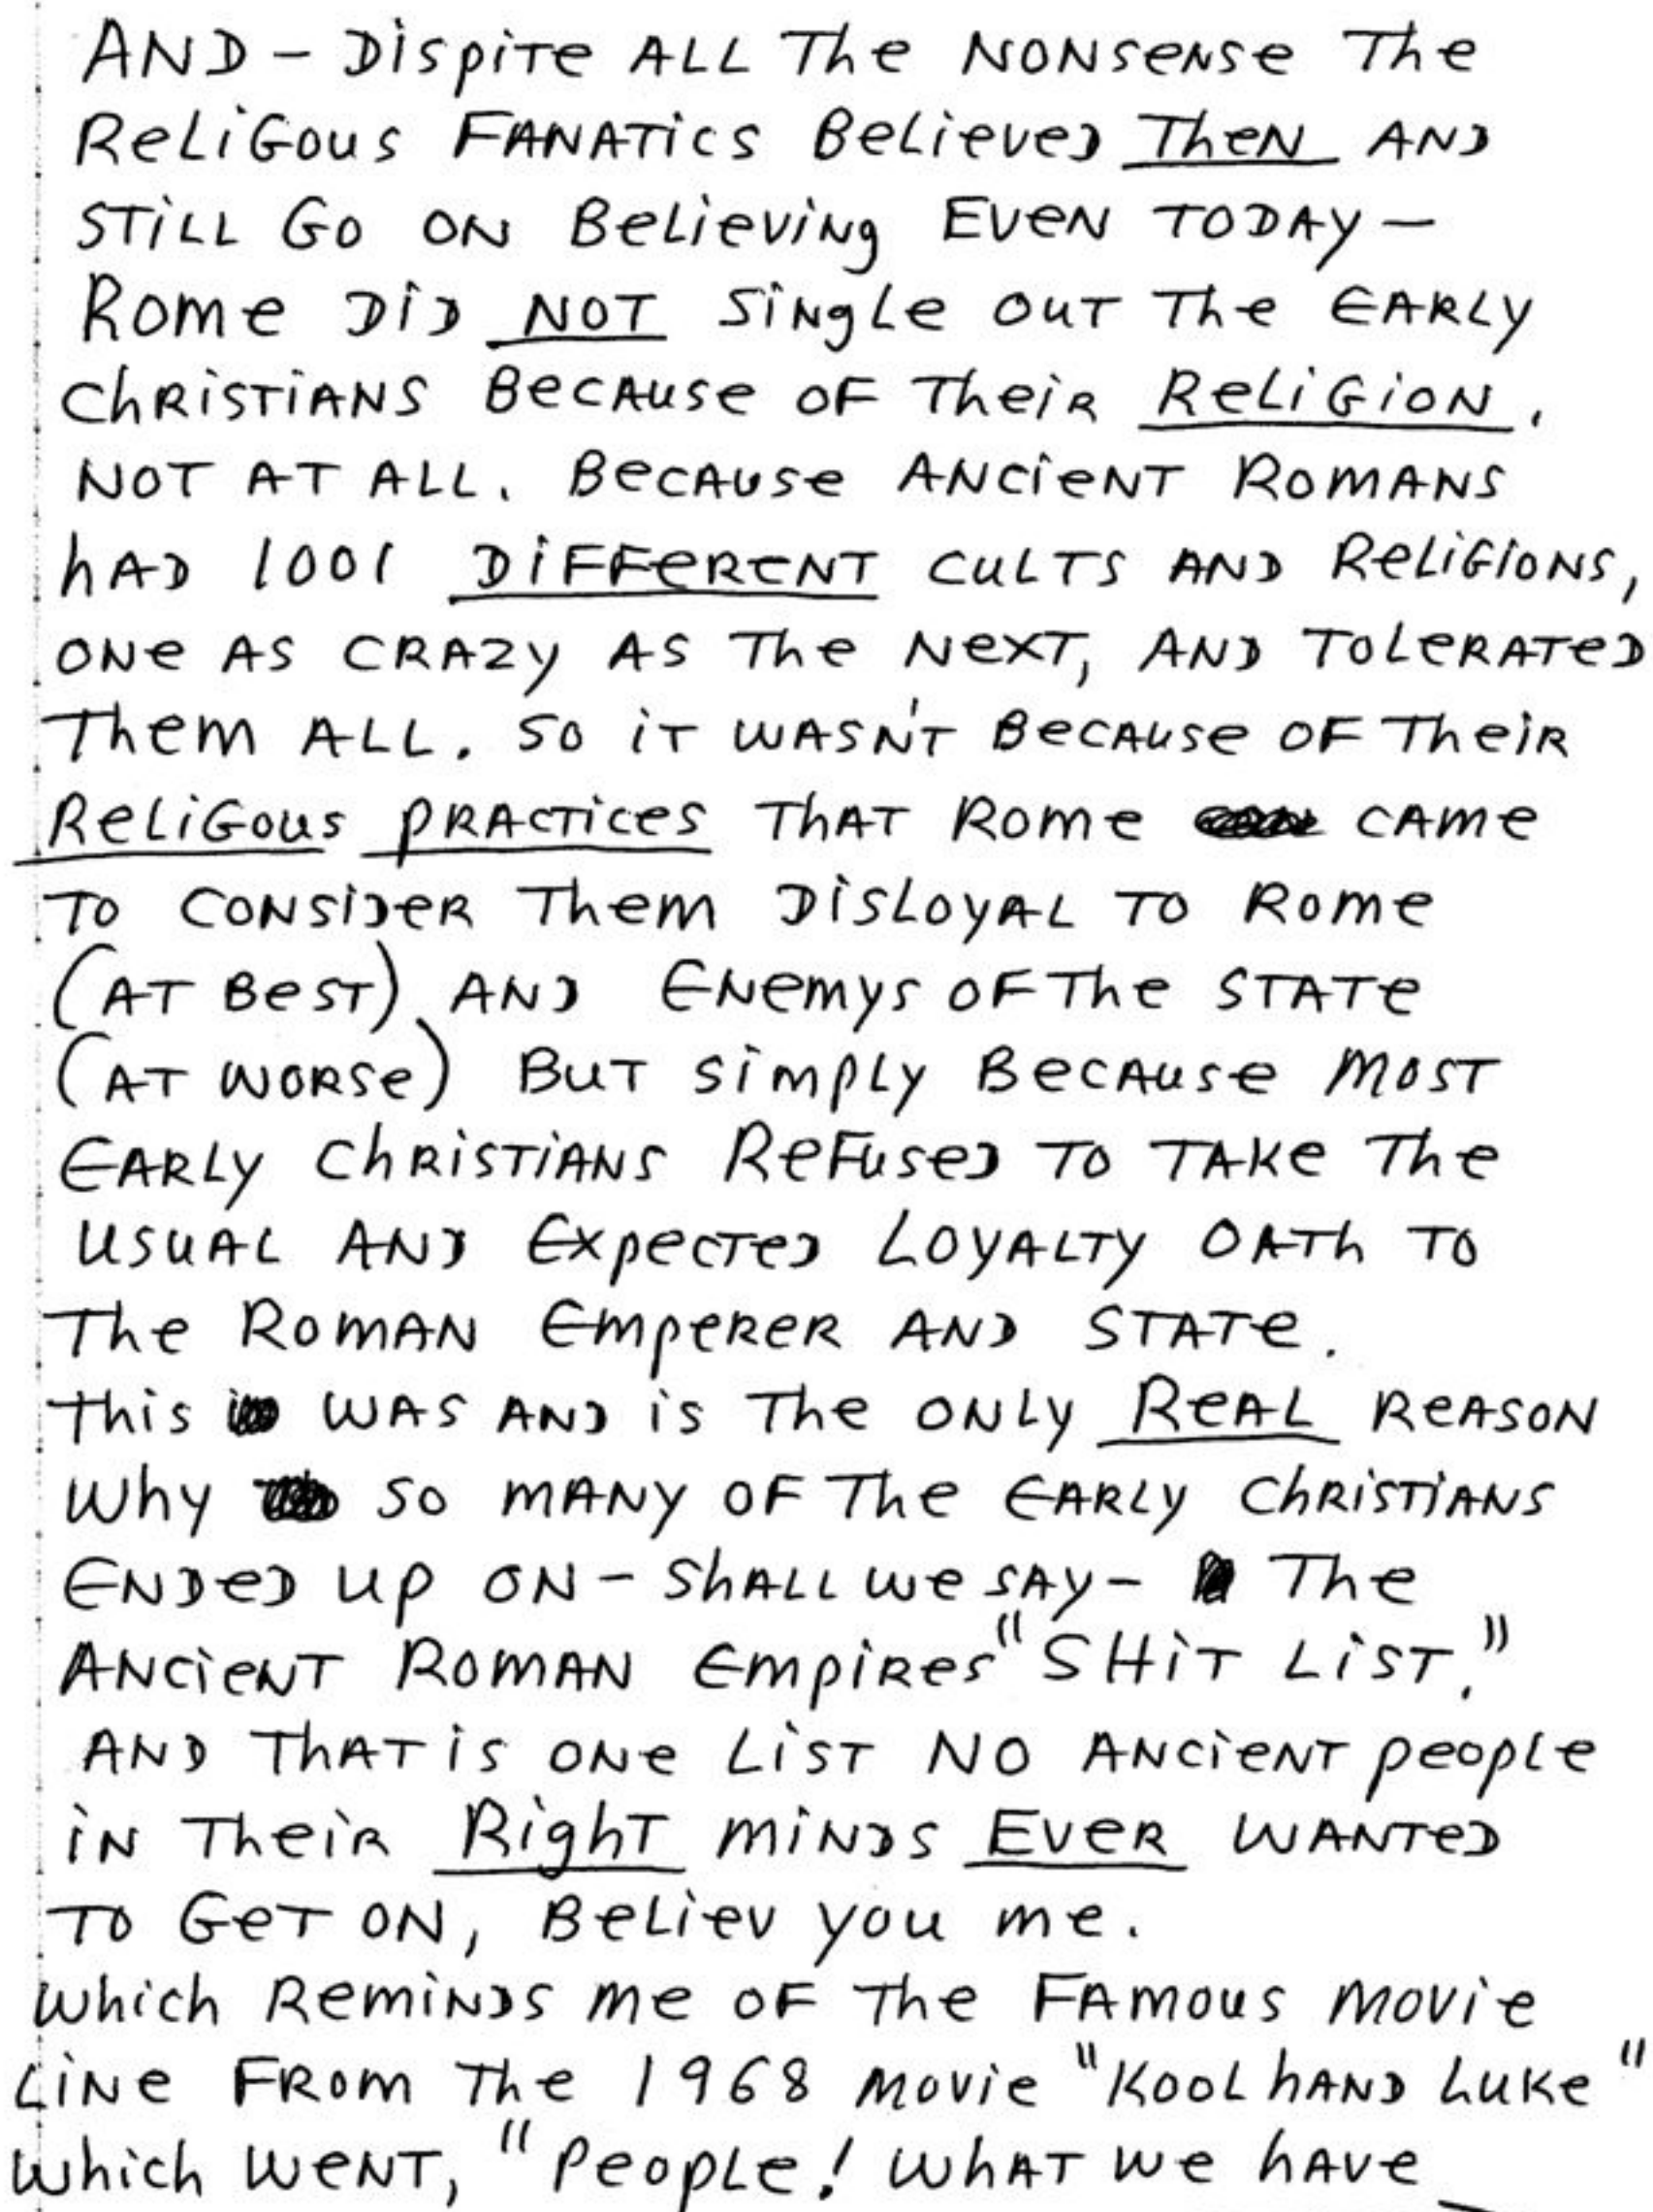 AND - DispiTe ALL The NONSeNSe The
ReLiGous FANATics BeLieveD TheN AND
STiLL Go ON BeLieviNg EVeN TODAY -
Rome DiD NOT SiNgLe OUT The EARLy
ChRiSTiANS BeCAuse OF TheiR ReLiGioN.
NOT AT ALL. BeCAuse ANCieNT ROMANS
hAD 1001 DiFFeReNT CuLTS AND ReLiGIONS,
ONe AS CRAZy AS The NeXT, AND ToLeRATeD
Them ALL. So iT WASN'T BeCAuse OF TheiR
ReLiGous pRACTices ThAT Rome CAme
To CONSiDeR Them DisLOyAL To Rome
(AT BeST) AND ENemys OF The STATe
(AT WORSe) BuT SimpLy BeCAuse MOST
EARLy ChRiSTiANS ReFuseD To TAKe The
USUAL AND ExpecTeD LOyALTy OATh To
The ROMAN EmpeReR AND STATe.
This WAS AND is The ONLy ReAL ReASON
Why So MANy OF The EARLy ChRiSTiANS
ENDeD up ON - ShALL we SAy - The
ANCieNT ROMAN EmpiRes "SHiT LiST."
AND ThAT is ONe LiST NO ANCieNT peopLe
iN TheiR RighT miNDs EveR WANTeD
To GeT ON, BeLiev you me.
Which RemiNDS me OF The FAmous movie
LiNe FRom The 1968 movie "KooL hAND LuKe"
Which WeNT, "PeopLe! WhAT we hAve